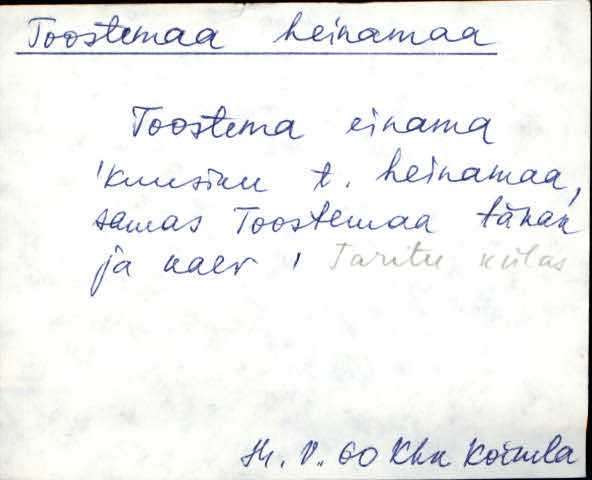 Toostemaa heinamaa
Toostema einama
'kuusiku t. heinamaa,
samas Toostemaa tänak
ja kaev, Taritu külas
V. 60 Khk